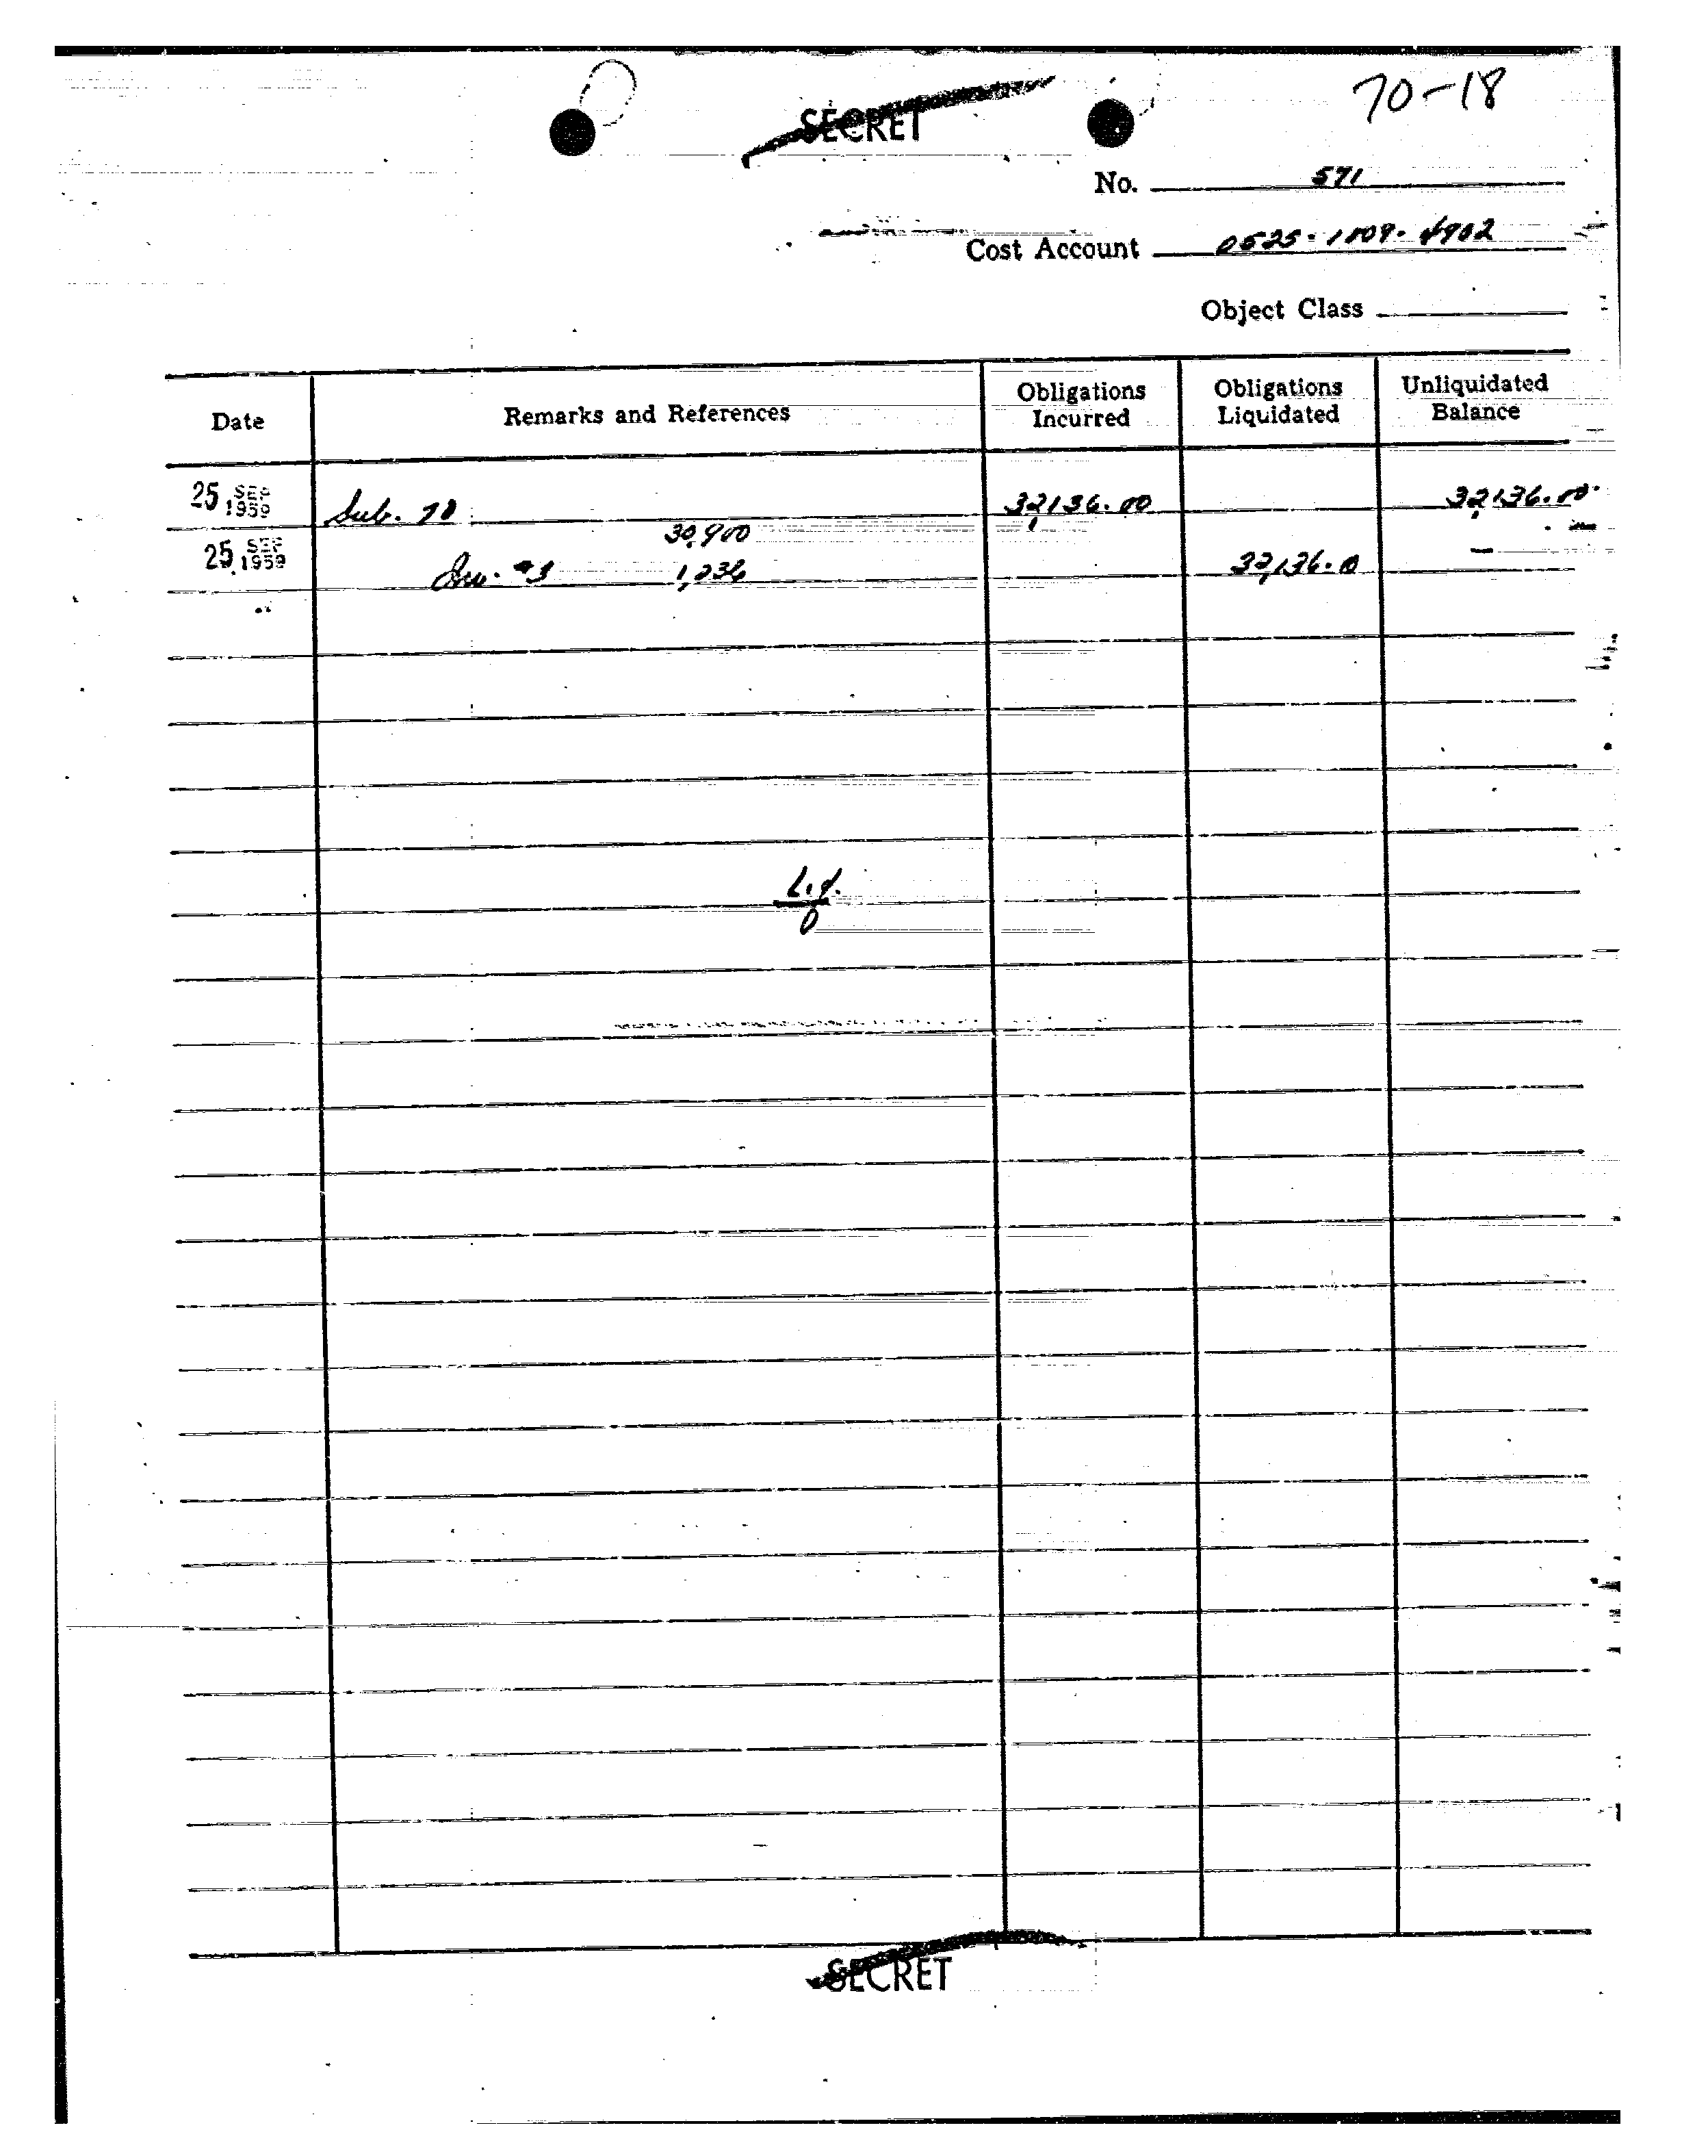 70-18
SECRET
No. 571
Cost Account 0525-1009-4902
Object Class
Date Remarks and References Obligations Incurred Obligations Liquidated Unliquidated Balance
25 SEP 1959 Sub. 70 32,136.00 32,136.00
30,900
25 SEP 1959 Inv. #3 1,236 32,136.0 —
Liq.
0
SECRET